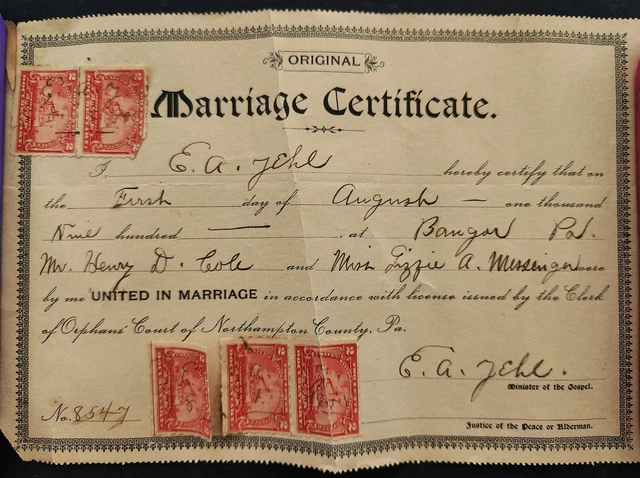 ORIGINAL
Marriage Certificate.
I, E. A. Yehl hereby certify that on
the First day of August — one thousand
Nine hundred — at Bangor Pa.
Mr. Henry D. Cole and Miss Lizzie A. Messenger were
by me UNITED IN MARRIAGE in accordance with license issued by the Clerk
of Orphans' Court of Northampton County, Pa.
E. A. Yehl.
Minister of the Gospel.
No. 8547
Justice of the Peace or Alderman.